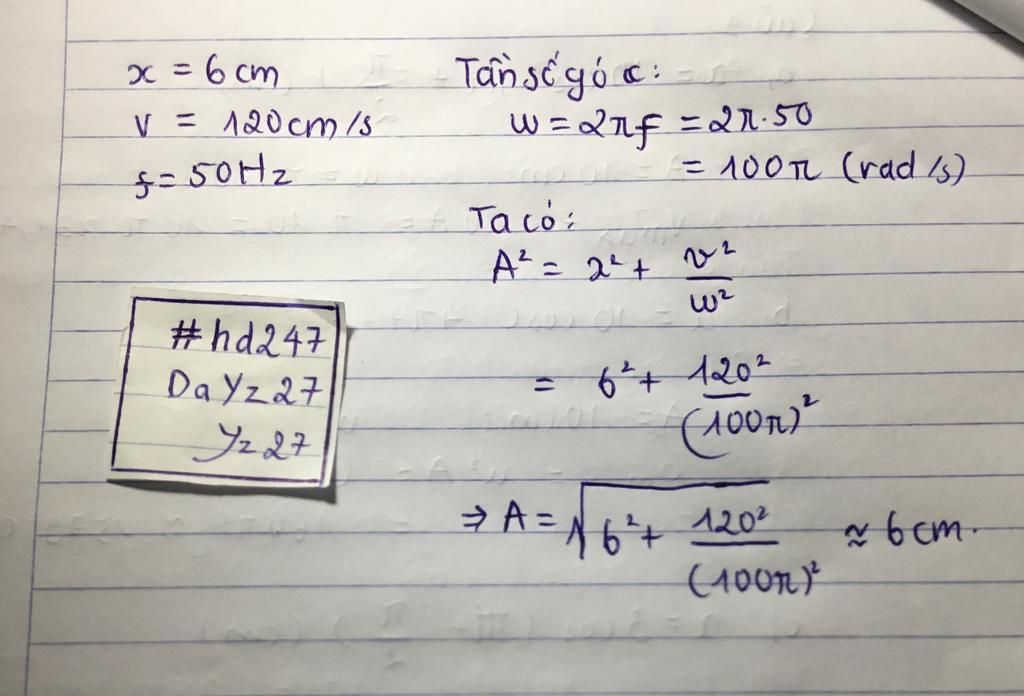 x = 6 cm
v = 120 cm/s
f = 50 Hz
Tần số góc:
w = 2πf = 2π.50
= 100π (rad/s)
Ta có:
A² = x² + v²/w²
= 6² + 120²/(100π)²
⇒ A = √(6² + 120²/(100π)²) ≈ 6 cm.
#hd247
DaYz27
Yz27